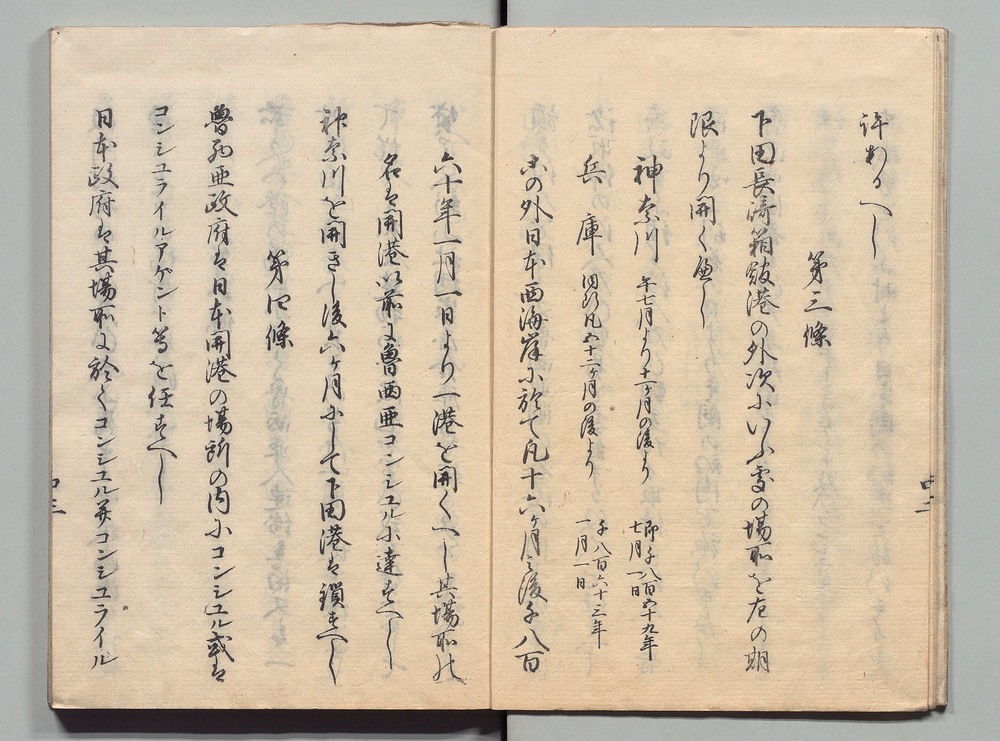 許あるへし
第三條
下田長崎箱館港の外次にいふ處の場所を左の期
限より開くへし
神奈川 午七月より十二ヶ月の後より 即千八百五十九年七月一日
兵庫 同断凡五十二ヶ月の後より 千八百六十三年一月一日
此の外日本西海岸に於て凡十六ヶ月之後千八百
六十年一月一日より一港を開くへし其場所の
名は開港以前に魯西亜コンシユルに達すへし
神奈川を開きし後六ヶ月にして下田港は鎖すへし
第四條
魯西亜政府は日本開港の場所の内にコンシユル或は
コンシユライルアゲント等を任すへし
日本政府は其場所に於てコンシユル并コンシユライル